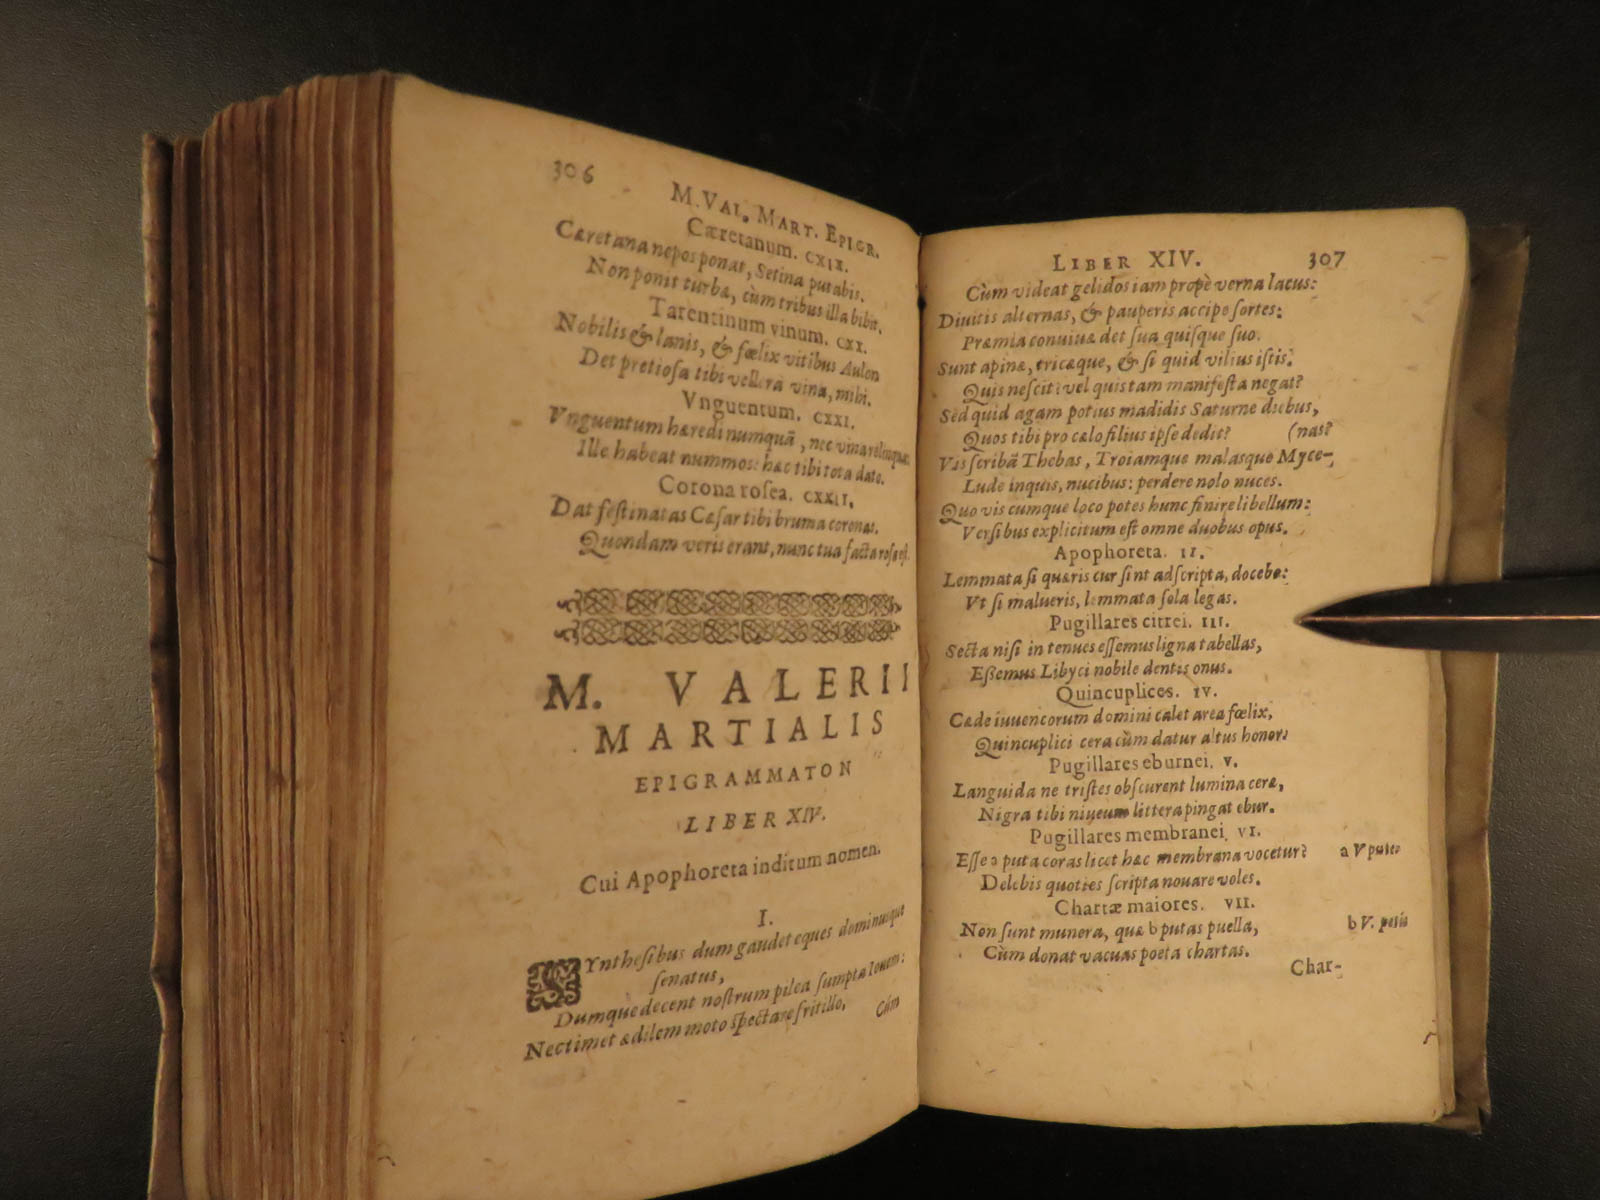 306
M. VAL. MART. EPIGR.
Cæretanum. CXIX.
Cæretana nepos ponat, Setina putabis.
Non ponit turbæ, cùm tribus illa bibit.
Tarentinum vinum. CXX.
Nobilis & lanis, & fœlix vitibus Aulon
Det pretiosa tibi vellera vina, mihi.
Vnguentum. CXXI.
Vnguentum hæredi numquã, nec vina relinquas:
Ille habeat nummos: hæc tibi tota dato.
Corona rosea. CXXII.
Dat festinatas Cæsar tibi bruma coronas.
Quondam veris erant, nunc tua facta rosa est.
M. VALERII
MARTIALIS
EPIGRAMMATON
LIBER XIV.
Cui Apophoreta inditum nomen.
I.
SYnthesibus dum gaudet eques dominusque
senatus,
Dumque decent nostrum pilea sumpta Iouem:
Nec timet ædilem moto spectare fritillo,
Cùm
LIBER XIV. 307
Cùm videat gelidos iam propè verna lacus:
Diuitis alternas, & pauperis accipe sortes:
Præmia conuiuæ det sua quisque suo.
Sunt apinæ, tricæque, & si quid vilius istis.
Quis nescit? vel quis tam manifesta negat?
Sed quid agam potius madidis Saturne diebus,
Quos tibi pro cælo filius ipse dedit? (nas?
Vis scribã Thebas, Troiamque malasque Myce-
Lude inquis, nucibus: perdere nolo nuces.
Quo vis cumque loco potes hunc finire libellum:
Versibus explicitum est omne duobus opus.
Apophoreta. II.
Lemmata si quæris cur sint adscripta, docebo:
Vt si malueris, lemmata sola legas.
Pugillares citrei. III.
Secta nisi in tenues essemus ligna tabellas,
Essemus Libyci nobile dentis onus.
Quincuplices. IV.
Cæde iuuencorum domini calet area fœlix,
Quincuplici cera cùm datur altus honor:
Pugillares eburnei. V.
Languida ne tristes obscurent lumina ceræ,
Nigra tibi niueum littera pingat ebur.
Pugillares membranei. VI.
Esse a puta coras licet hæc membrana vocetur? a V putes
Delebis quoties scripta nouare voles.
Chartæ maiores. VII.
Non sunt munera, quæ b putas puella, b V.
Cùm donat vacuas poeta chartas.
Char-